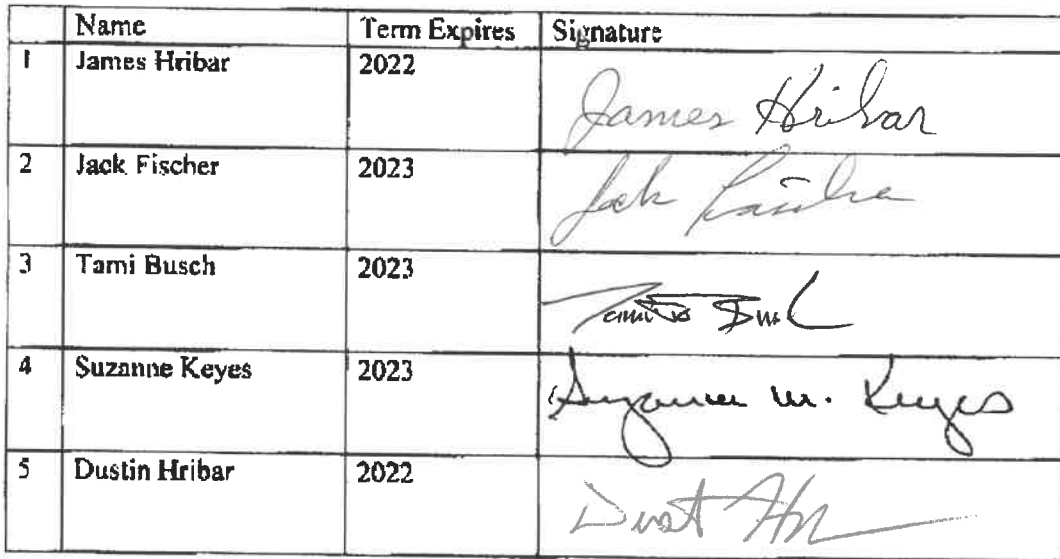 Name Term Expires Signature
1 James Hribar 2022 James Hribar
2 Jack Fischer 2023 Jack Fischer
3 Tami Busch 2023 Tami Busch
4 Suzanne Keyes 2023 Suzanne M. Keyes
5 Dustin Hribar 2022 Dust